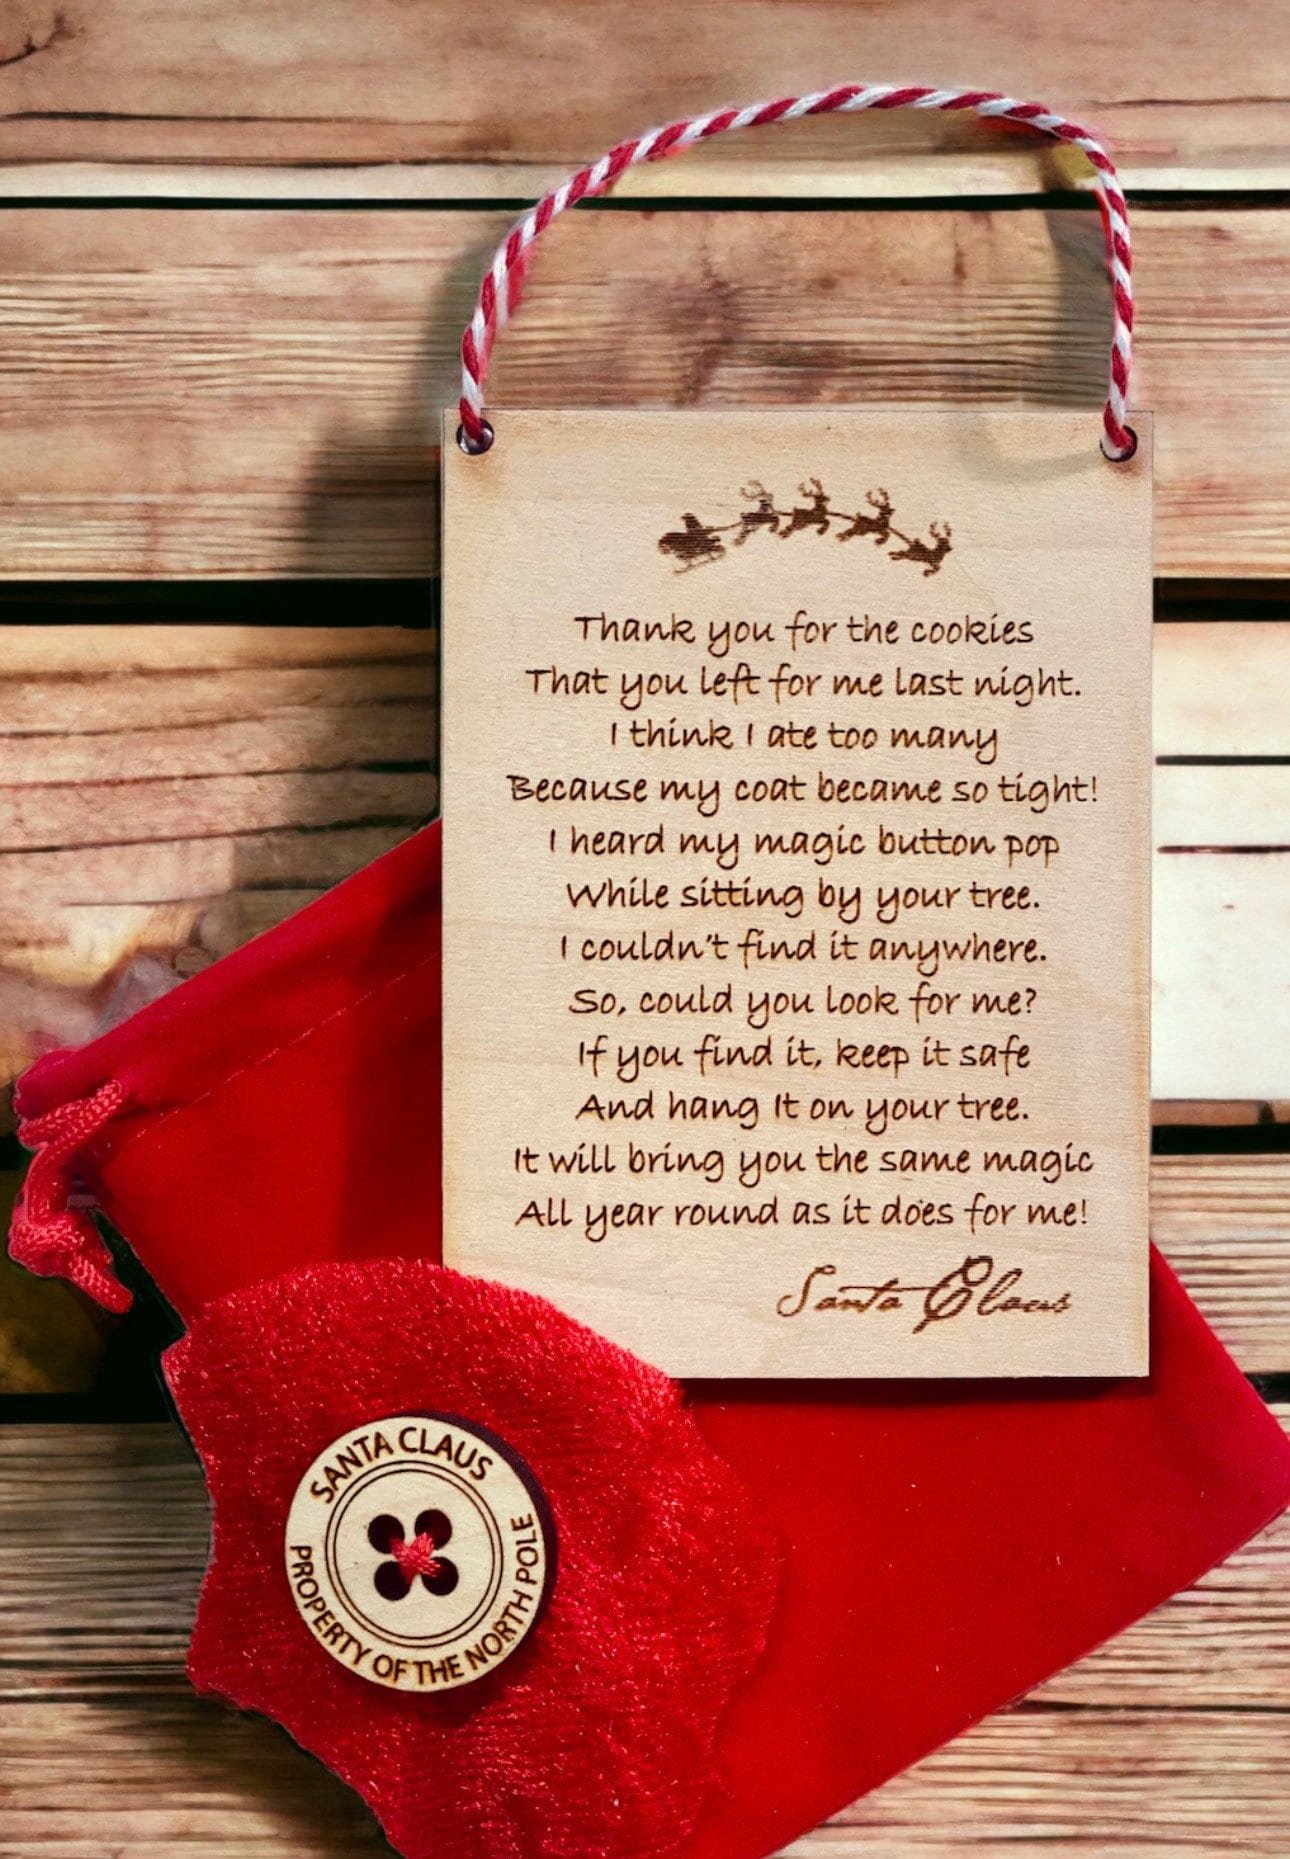 Thank you for the cookies
That you left for me last night.
I think I ate too many
Because my coat became so tight!
I heard my magic button pop
While sitting by your tree.
I couldn't find it anywhere.
So, could you look for me?
If you find it, keep it safe
And hang It on your tree.
It will bring you the same magic
All year round as it does for me!
Santa Claus
SANTA CLAUS
PROPERTY OF THE NORTH POLE